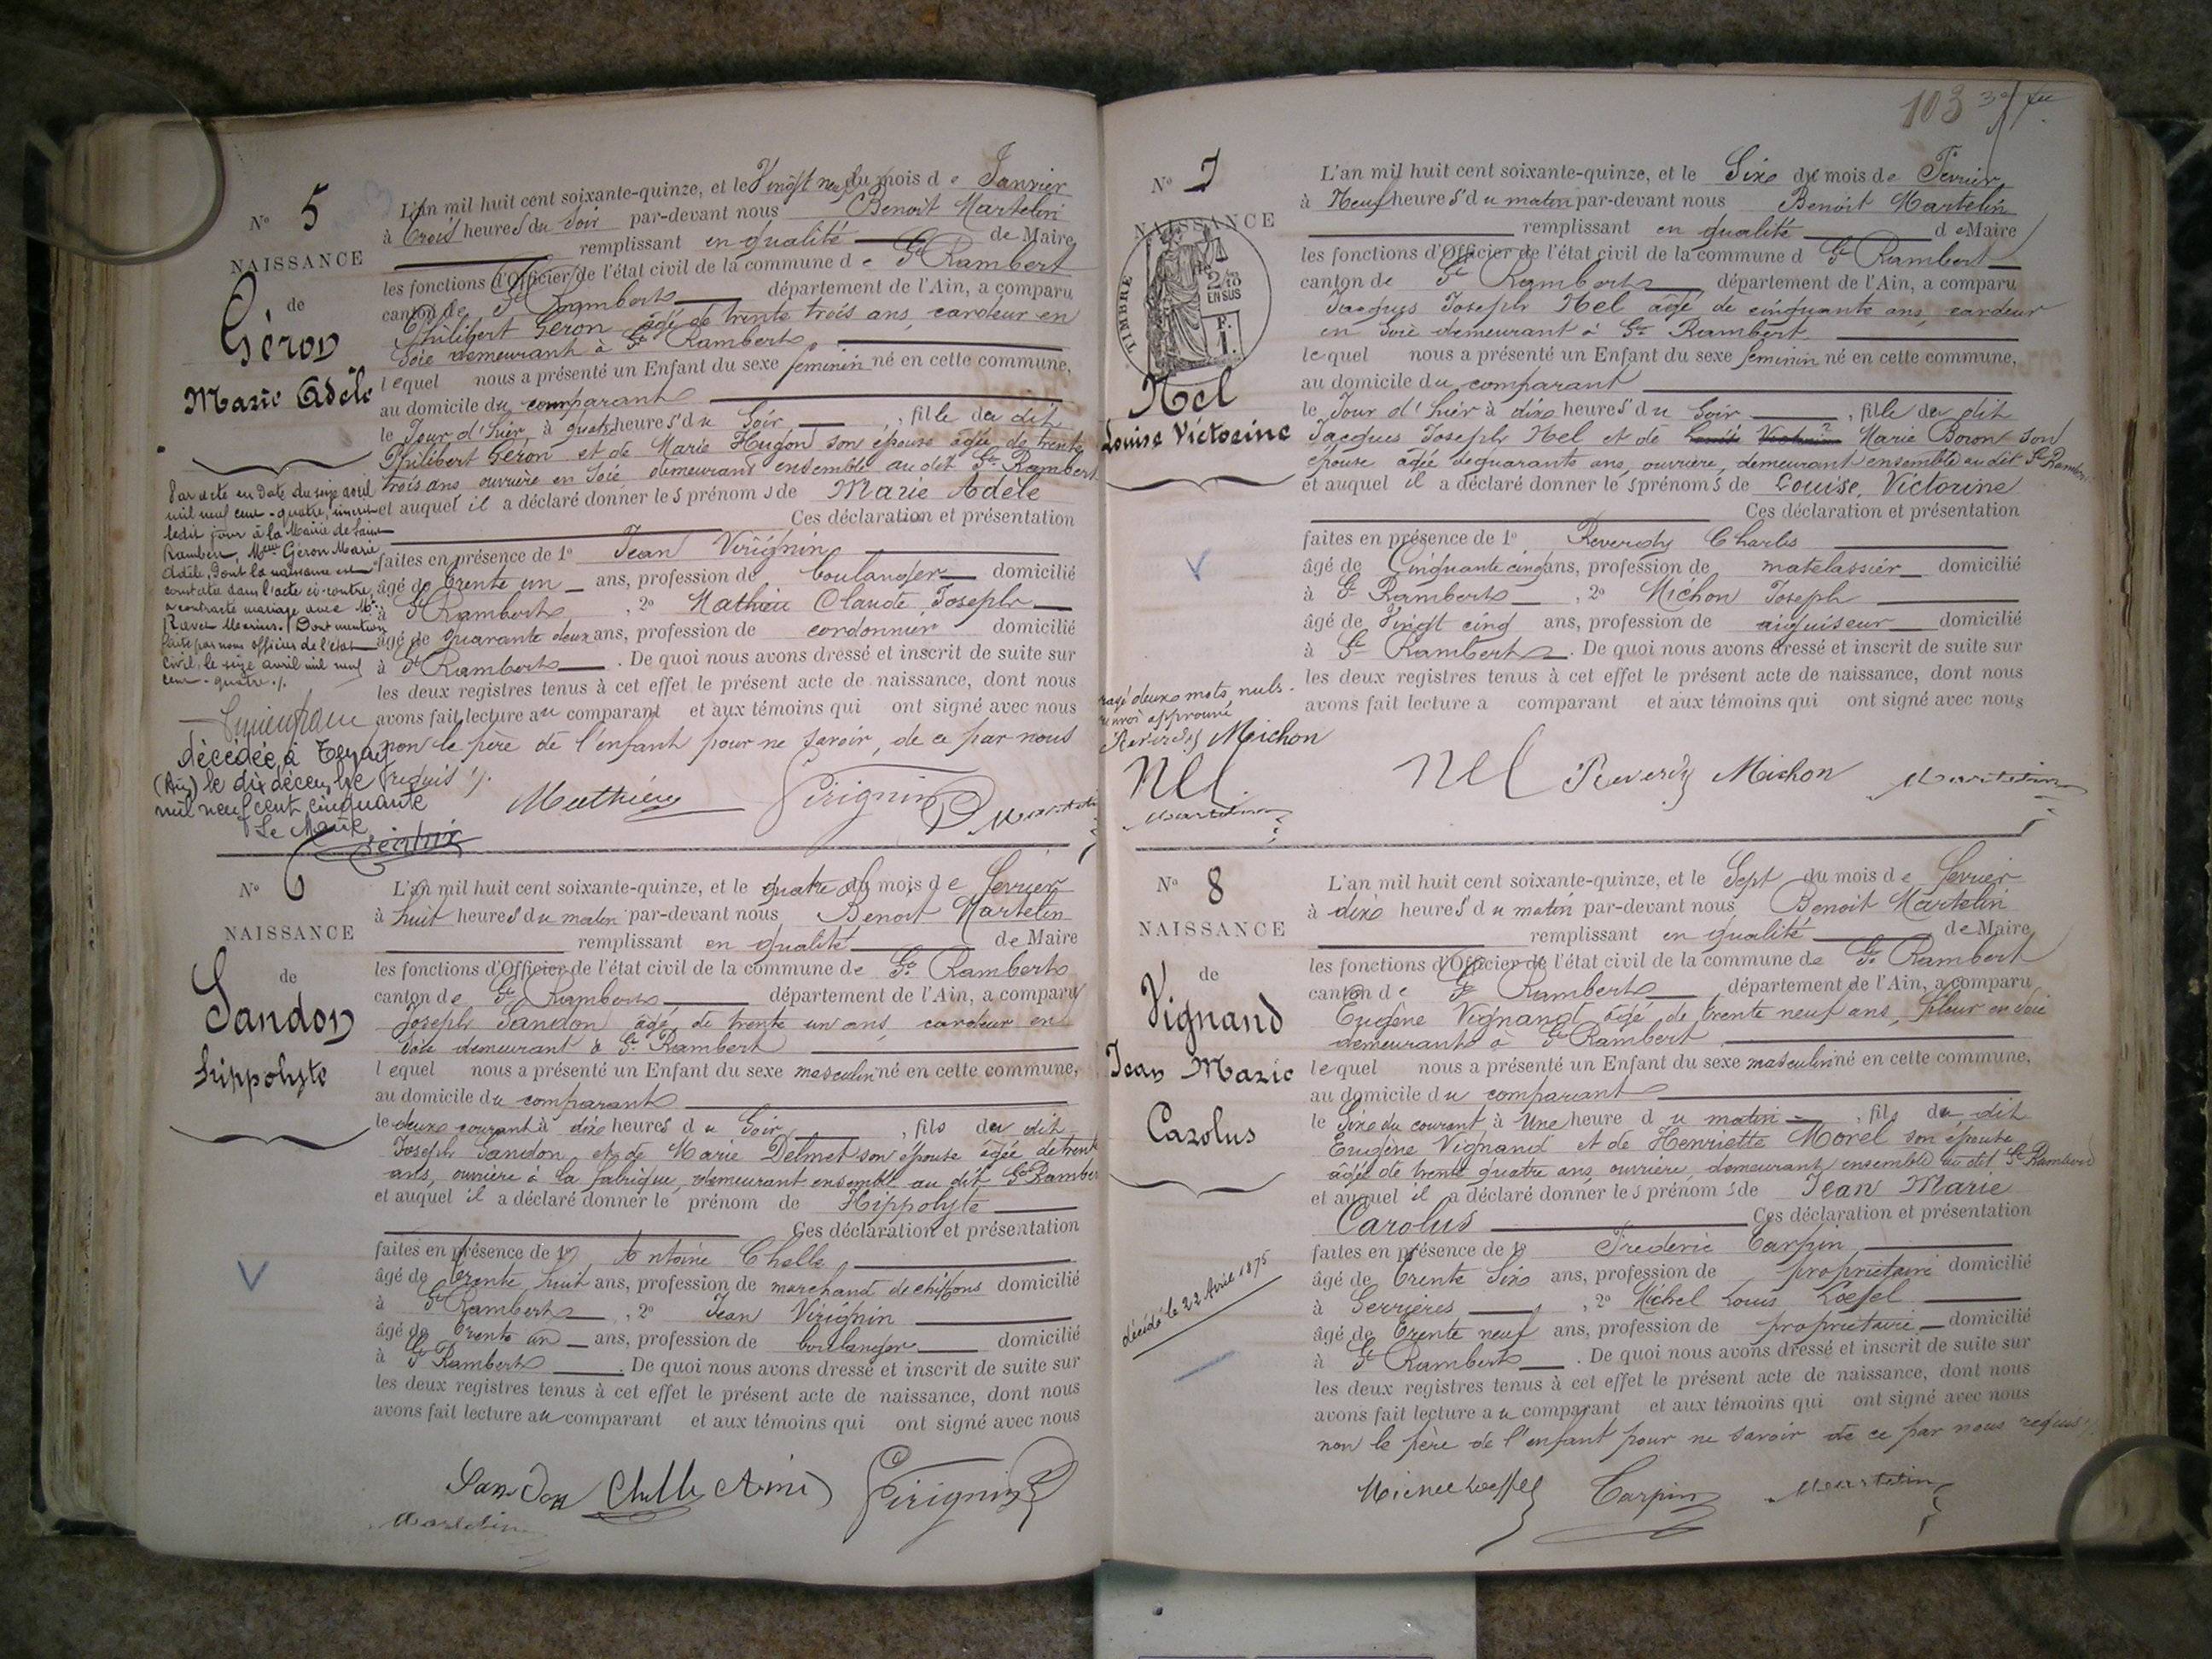 N° 5
NAISSANCE
de
Géron
Marie Adèle
Par acte en date du seize avril
mil neuf cent-quatre, inscrit
ledit jour à la Mairie de Saint
Rambert, Melle Géron Marie
Adèle, dont la naissance est
constatée dans l'acte ci-contre,
a contracté mariage avec Mr
Ravet Marius. Dont mention
faite par nous officier de l'état
civil, le seize avril mil neuf
cent-quatre ./.
décédée à Tenay
(Ain) le dix décembre
mil neuf cent cinquante
Le Maire
L'an mil huit cent soixante-quinze, et le Vingt neuf du mois de Janvier
à Trois heures du Soir par-devant nous Benoit Martelin
remplissant en qualité de Maire
les fonctions d'Officier de l'état civil de la commune de St Rambert
canton de St Rambert département de l'Ain, a comparu
Philibert Géron âgé de trente trois ans, cardeur en
Soie demeurant à St Rambert
lequel nous a présenté un Enfant du sexe feminin né en cette commune,
au domicile du comparant
le Jour d'hier à quatre heures du Soir, fille du dit
Philibert Géron et de Marie Hugon son épouse âgée de trente
trois ans ouvrière en Soie, demeurant ensemble au dit St Rambert
et auquel il a déclaré donner les prénoms de Marie Adèle
Ces déclaration et présentation
faites en présence de 1° Jean Virignin
âgé de Trente un ans, profession de boulanger domicilié
à St Rambert, 2° Mathieu Claude Joseph
âgé de quarante deux ans, profession de cordonnier domicilié
à St Rambert. De quoi nous avons dressé et inscrit de suite sur
les deux registres tenus à cet effet le présent acte de naissance, dont nous
avons fait lecture au comparant et aux témoins qui ont signé avec nous
non le père de l'enfant pour ne savoir, de ce par nous
requis ./.
Mathieu Virignin Martelin
N° 6
NAISSANCE
de
Sandon
hippolyte
L'an mil huit cent soixante-quinze, et le quatre du mois de fevrier
à huit heures du matin par-devant nous Benoit Martelin
remplissant en qualité de Maire
les fonctions d'Officier de l'état civil de la commune de St Rambert
canton de St Rambert département de l'Ain, a comparu
Joseph Sandon âgé de trente un ans, cardeur en
Soie demeurant à St Rambert
lequel nous a présenté un Enfant du sexe masculin né en cette commune,
au domicile du comparant
le deux courant à dix heures du Soir, fils du dit
Joseph Sandon et de Marie Delmet son épouse âgée de trente
ans, ouvrière à la fabrique, demeurant ensemble au dit St Rambert
et auquel il a déclaré donner le prénom de Hippolyte
Ces déclaration et présentation
faites en présence de 1° Antoine Chelle
âgé de trente huit ans, profession de marchand de chiffons domicilié
à St Rambert, 2° Jean Virignin
âgé de Trente un ans, profession de boulanger domicilié
à St Rambert. De quoi nous avons dressé et inscrit de suite sur
les deux registres tenus à cet effet le présent acte de naissance, dont nous
avons fait lecture au comparant et aux témoins qui ont signé avec nous
Sandon Chelle Virignin
Martelin
103
N° 7
NAISSANCE
TIMBRE
2/10
EN SUS
Nel
Louise Victorine
rayé deux mots nuls.
renvoi approuvé
Reverdy Michon
Nel
Martelin
L'an mil huit cent soixante-quinze, et le Six du mois de Fevrier
à Neuf heures du matin par-devant nous Benoit Martelin
remplissant en qualité de Maire
les fonctions d'Officier de l'état civil de la commune d St Rambert
canton de St Rambert département de l'Ain, a comparu
Jacques Joseph Nel âgé de cinquante ans, cardeur
en Soie demeurant à St Rambert
lequel nous a présenté un Enfant du sexe feminin né en cette commune,
au domicile du comparant
le Jour d'hier à dix heures du Soir, fille du dit
Jacques Joseph Nel et de Marie Boron son
épouse âgée de quarante ans, ouvrière, demeurant ensemble au dit St Rambert
et auquel il a déclaré donner les prénoms de Louise, Victorine
Ces déclaration et présentation
faites en présence de 1° Reverdy Charles
âgé de Cinquante cinq ans, profession de matelassier domicilié
à St Rambert, 2° Michon Joseph
âgé de Vingt cinq ans, profession de aiguiseur domicilié
à St Rambert. De quoi nous avons dressé et inscrit de suite sur
les deux registres tenus à cet effet le présent acte de naissance, dont nous
avons fait lecture a comparant et aux témoins qui ont signé avec nous
Nel Reverdy Michon Martelin
N° 8
NAISSANCE
de
Vignand
Jean Marie
Carolus
décédé le 22 Avril 1875
L'an mil huit cent soixante-quinze, et le Sept du mois de fevrier
à dix heures du matin par-devant nous Benoit Martelin
remplissant en qualité de Maire
les fonctions d'Officier de l'état civil de la commune de St Rambert
canton de St Rambert département de l'Ain, a comparu
Eugène Vignand âgé de trente neuf ans, fileur en Soie
demeurant à St Rambert
lequel nous a présenté un Enfant du sexe masculin né en cette commune,
au domicile du comparant
le Six du courant, à Une heure du matin, fils du dit
Eugène Vignand et de Henriette Morel son épouse
âgée de trente quatre ans, ouvrière, demeurant ensemble au dit St Rambert
et auquel il a déclaré donner les prénoms de Jean Marie
Carolus Ces déclaration et présentation
faites en présence de 1° Frederic Carpin
âgé de Trente Six ans, profession de propriétaire domicilié
à Serrières, 2° Michel Louis Loefel
âgé de Trente neuf ans, profession de propriétaire domicilié
à St Rambert. De quoi nous avons dressé et inscrit de suite sur
les deux registres tenus à cet effet le présent acte de naissance, dont nous
avons fait lecture au comparant et aux témoins qui ont signé avec nous
non le père de l'enfant pour ne savoir de ce par nous requis ./.
Carpin Martelin